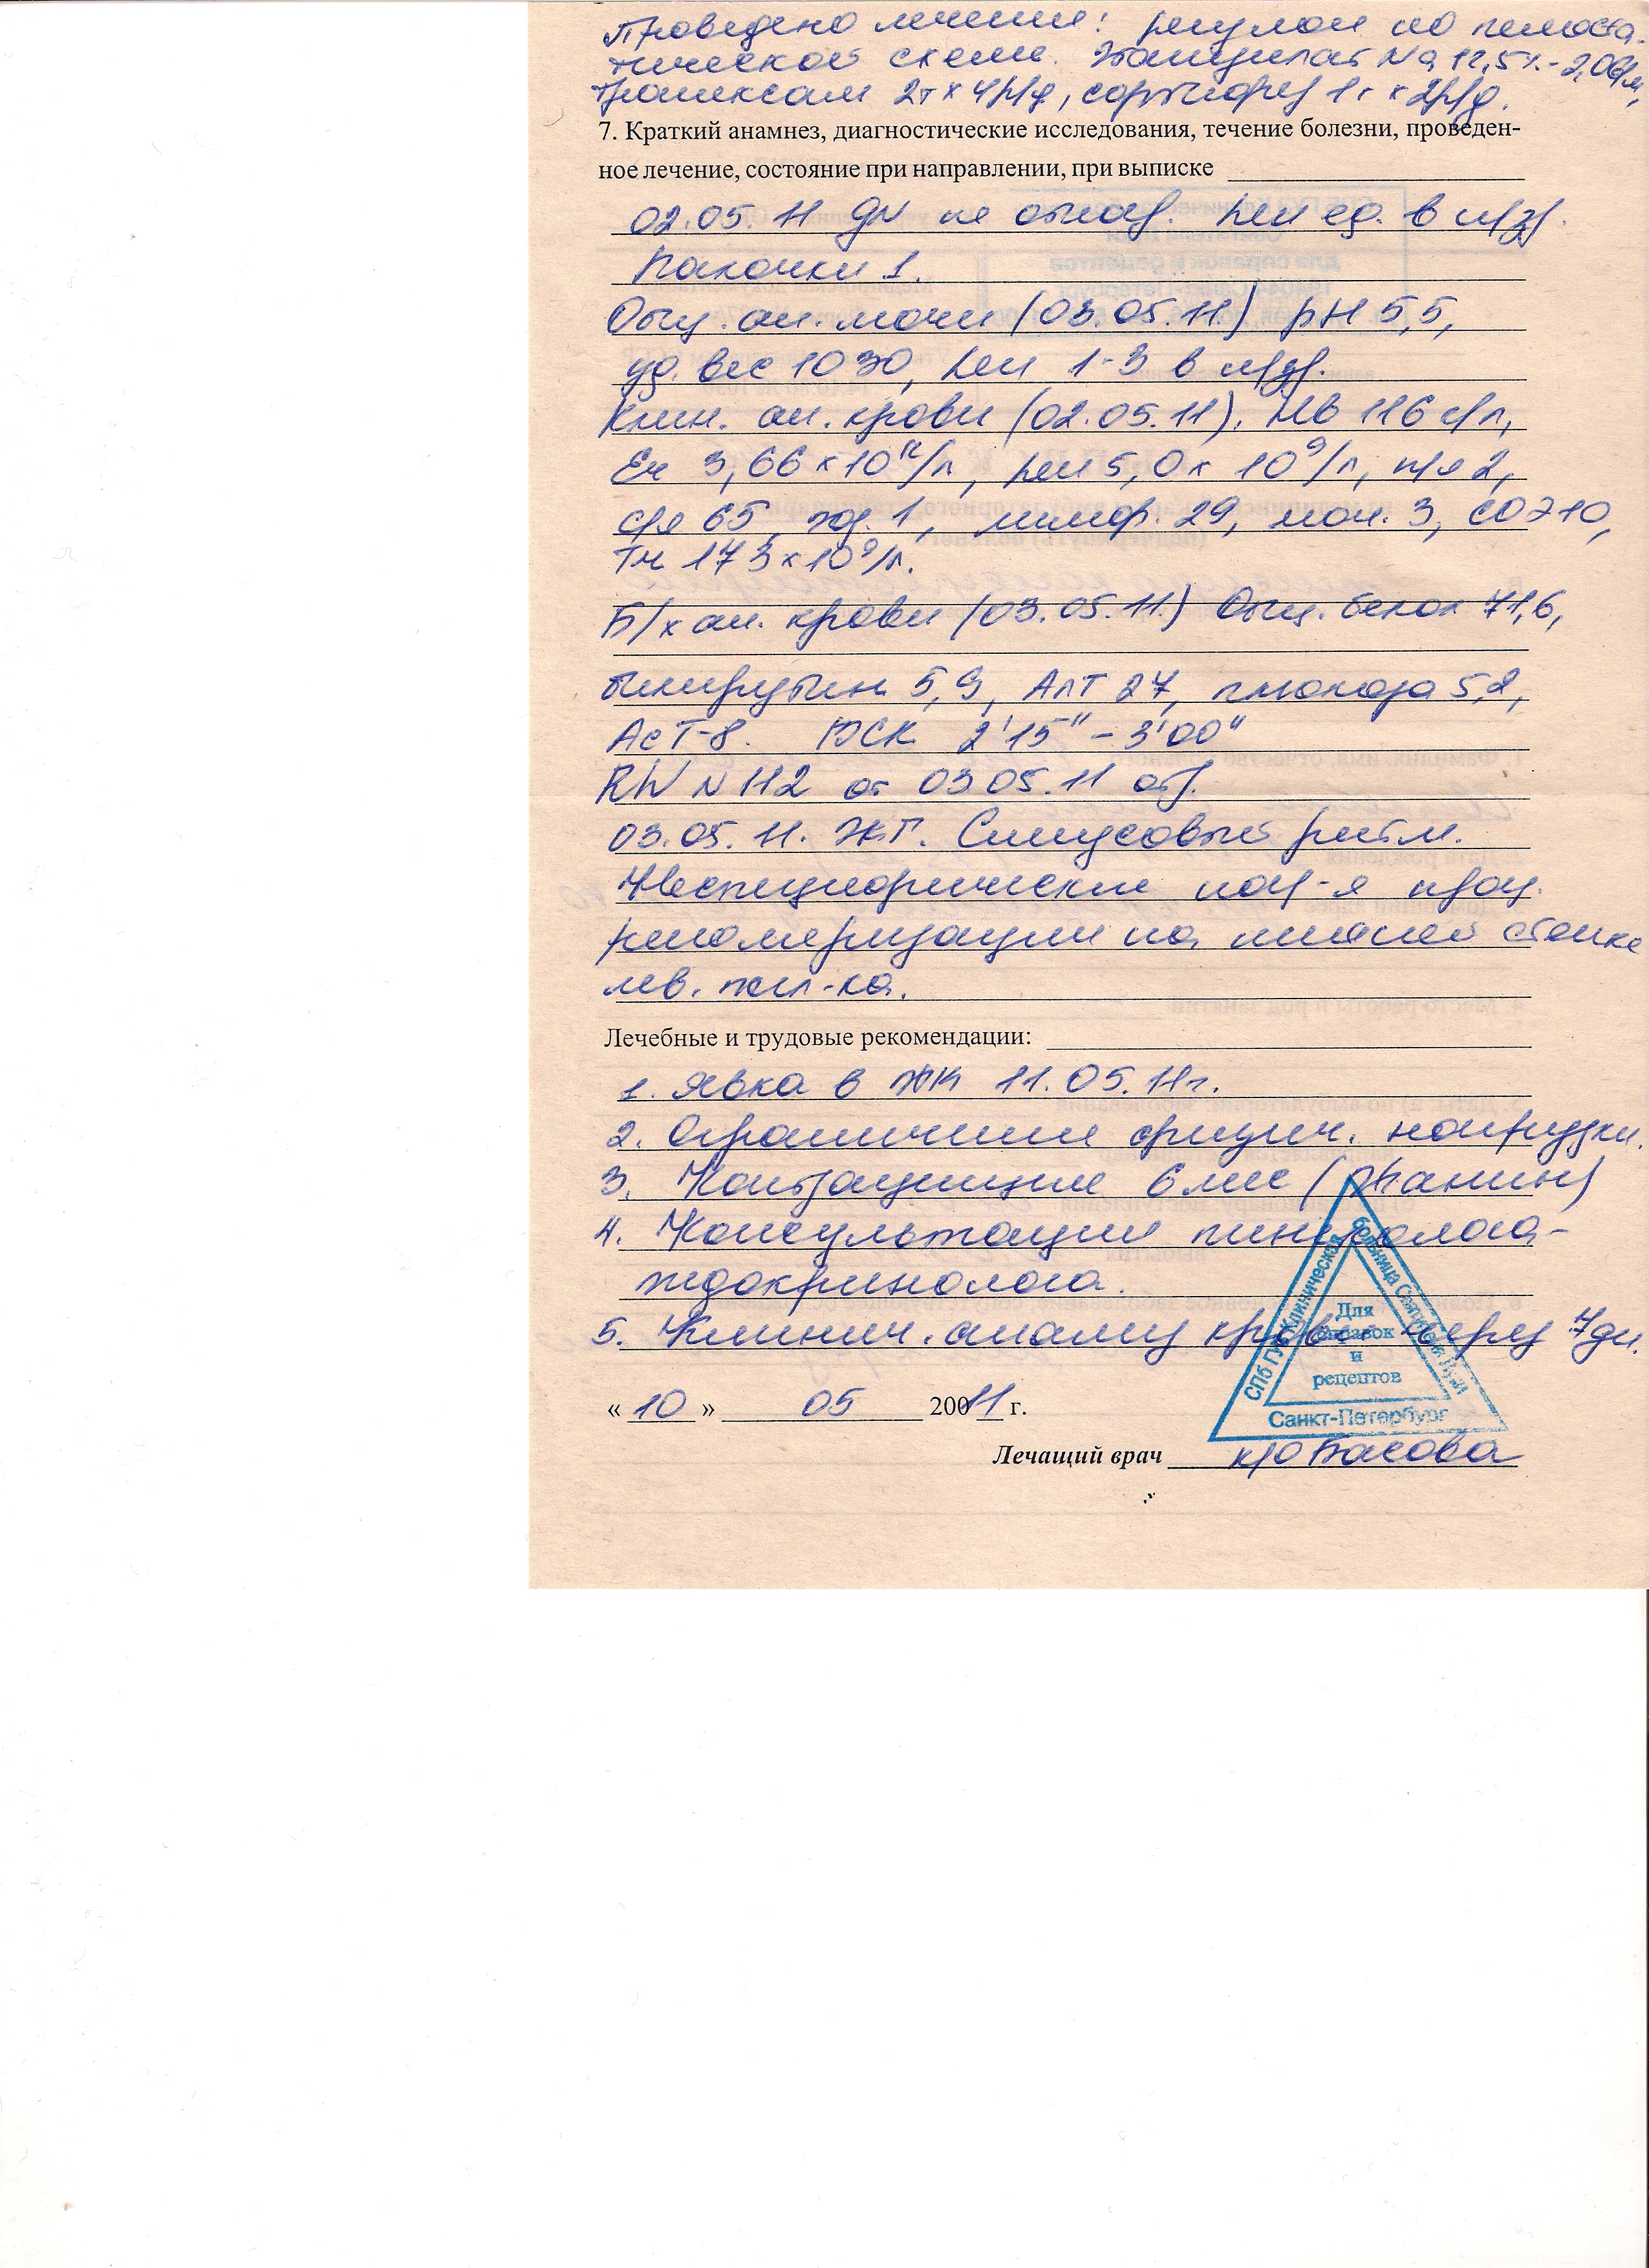 Проведено лечение: регулон по гемоста-
тической схеме. Этамзилат Na 12,5% - 2,0 в/м,
Транексам 2т х 4р/д, сорбифер 1т х 2р/д.
7. Краткий анамнез, диагностические исследования, течение болезни, проведен-
ное лечение, состояние при направлении, при выписке
02.05.11 GN не обнар. Леи ед. в п/зр.
Палочки 1.
Общ. ан. мочи (03.05.11) рН 5,5,
уд. вес 1030, Леи 1-3 в п/зр.
Клин. ан. крови (02.05.11). Hb 116 г/л,
Er 3,66 х 10¹²/л, Леи 5,0 х 10⁹/л, п/я 2,
с/я 65, эоз. 1, лимф. 29, мон. 3, СОЭ 10,
Тн 173 х 10⁹/л.
Б/х ан. крови (03.05.11) Общ. белок 71,6,
билирубин 5,9, АлТ 27, глюкоза 5,2,
АсТ-8. ВСК 2'15" - 3'00"
RW N 112 от 03 05.11 отр.
03.05.11. ЭКГ. Синусовый ритм.
Неспецифические нар-я проц.
реполяризации на нижней стенке
лев. жел-ка.
Лечебные и трудовые рекомендации:
1. Явка в ЖК 11.05.11г.
2. Ограничение физич. нагрузки.
3. Контрацепция 6 мес (Жанин)
4. Консультация гинеколога-
эндокринолога.
5. Клинич. анализ крови через 7 дн.
СПб ГУЗ Клиническая больница Святителя Луки
Для
справок
и
рецептов
Санкт-Петербург
« 10 » 05 20011 г.
Лечащий врач к/о Басова